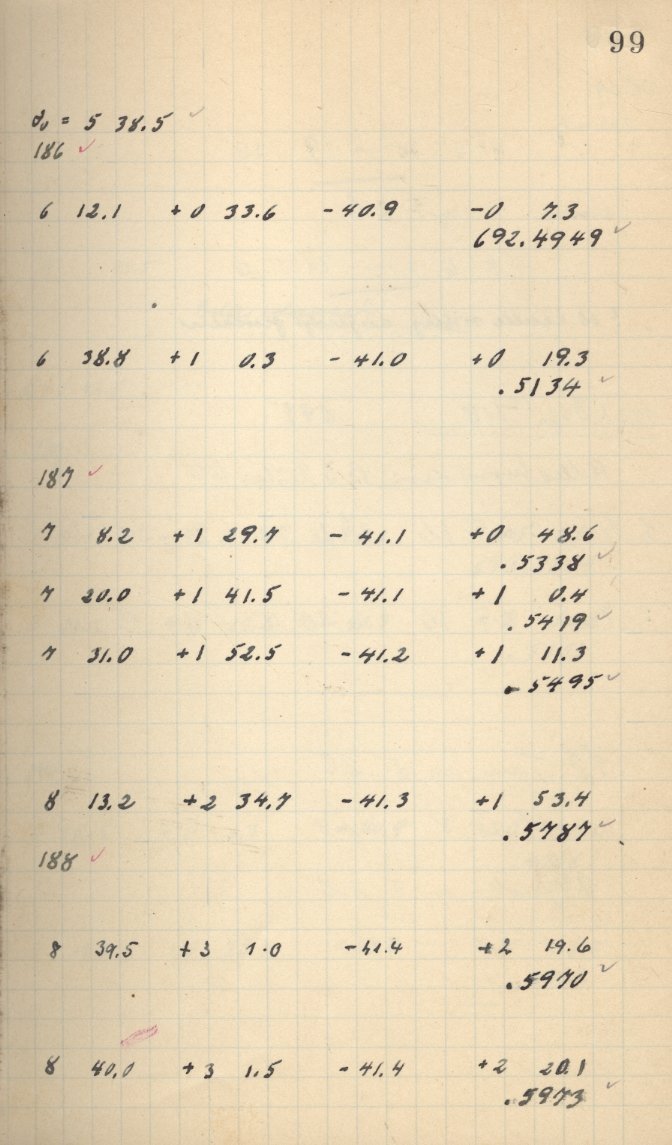 99
θ₀ = 5 38.5 ✓
186 ✓
6 12.1 +0 33.6 -40.9 -0 7.3
692.4949 ✓
6 38.8 +1 0.3 -41.0 +0 19.3
.5134 ✓
187 ✓
7 8.2 +1 29.7 -41.1 +0 48.6
.5338 ✓
7 20.0 +1 41.5 -41.1 +1 0.4
.5419 ✓
7 31.0 +1 52.5 -41.2 +1 11.3
.5495 ✓
8 13.2 +2 34.7 -41.3 +1 53.4
.5787 ✓
188 ✓
8 39.5 +3 1.0 -41.4 +2 19.6
.5970 ✓
8 40.0 +3 1.5 -41.4 +2 20.1
.5973 ✓